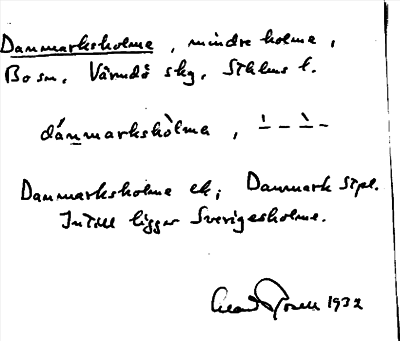 Danmarksholme, mindre holme,
Bo sn, Värmdö skg, Sthlms l.
dánmarkshòlme, – – –
Danmarksholme ek; Danmark Stpl.
Intill ligger Sverigesholme.
1932